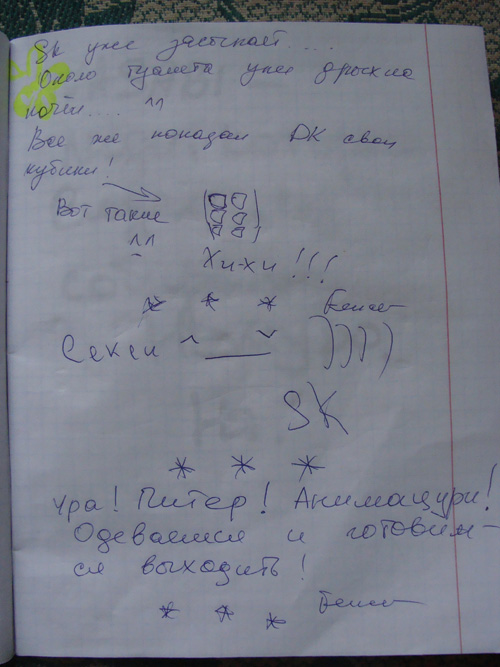 SK уже засыпает....
Около туалета уже дрыхла
почти.... ^^
Все же показал ДК свои
кубики!
Вот такие
^^
Хи-хи!!!
* * *
Секси ^___^ ))))
SK
* * *
Ура! Питер! Анимацури!
Одеваемся и готовим-
ся выходить!
* * *